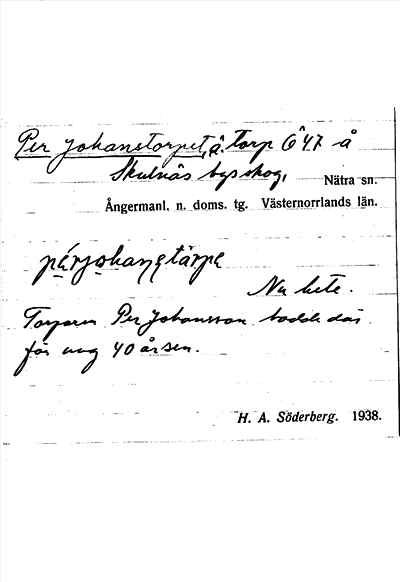 Per Johanstorpet, å. torp 6^47 å
Skulnäs bys skog, Nätra sn.
Ångermanl. n. doms. tg. Västernorrlands län.
pärjohanstärpe
Nu bete.
Torparen Per Johansson bodde där
för ung 40 år sen.
H. A. Söderberg. 1938.